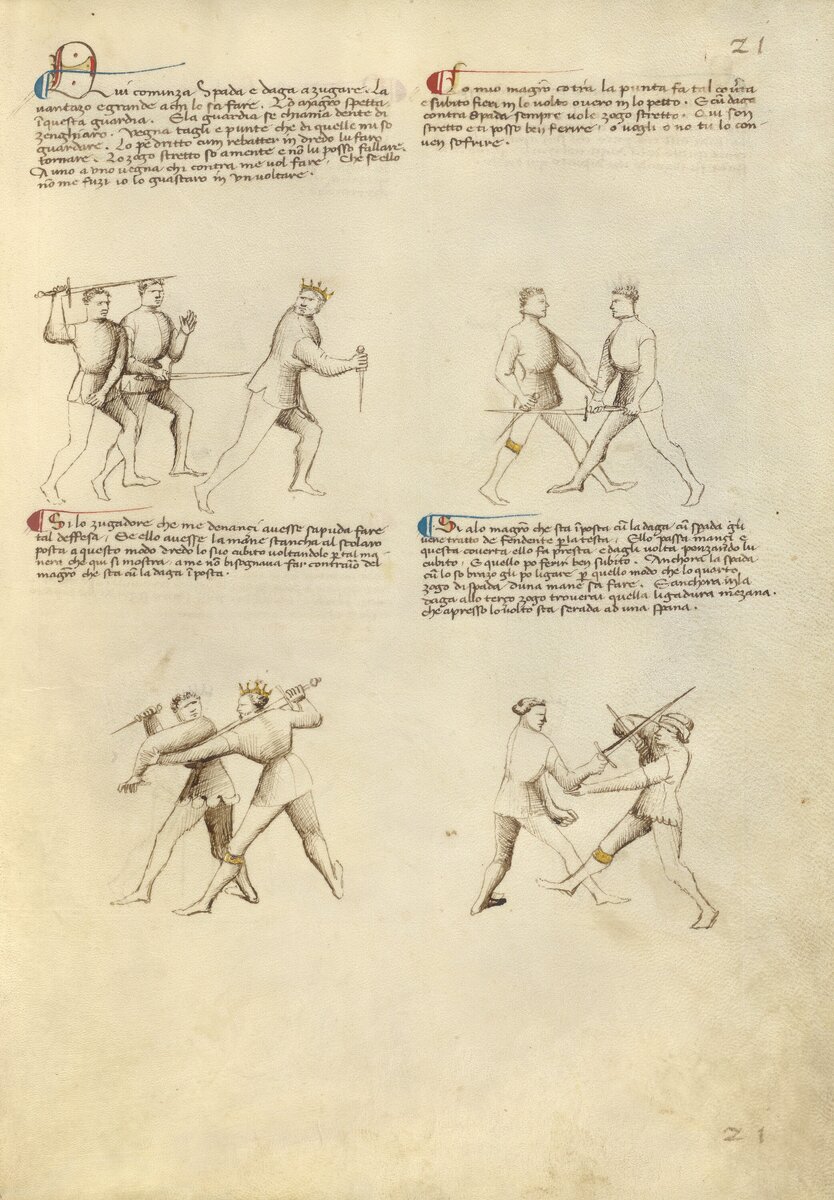 21
Qui cominza Spada e daga a zugare. La
vantazo e grande a chi lo sa fare. Lo magro spetta
in questa guardia. E la guardia se chiama dente di
zenghiaro. Vegna tagli e punte che di quelle mi so
guardare. Lo pe dritto cum rebatter in dredo lu faro
tornare. Lo zogo stretto so a mente e no lu posso fallare.
A uno a uno vegna chi contra me vol fare. Che se ello
no me fuzi io lo guastaro in un voltare.
Lo mio magro cotra la punta fa tal coverta
e subito fieri in lo volto overo in lo petto. E cum daga
contra spada sempre vole zogo stretto. Qui son
stretto e ti posso ben ferire, o vogli o no tu lo con-
ven sofrire.
Si lo zugadore che me denanci avesse sapuda fare
tal deffesa, Se ello avesse la mane stancha al scolaro
posta a questo modo dredo lo suo cubito voltandolo per tal ma-
nera che qui si mostra, a me no bisognava far contrario del
magro che sta cum la daga in posta.
Si a lo magro che sta in posta cum la daga cum spada gli
vene tratto de fendente per la testa, Ello passa inanci e
questa coverta ello fa presta e dagli volta penzando lu
cubito, E quello po ferir ben subito. Anchora la spada
cum lo so brazo gli po ligare per quello modo che lo quarto
zogo di spada duna mane sa fare. E anchora in la
daga allo terzo zogo troverai quella ligadura mezana.
che apresso lo volto sta serada ad una spana.
21